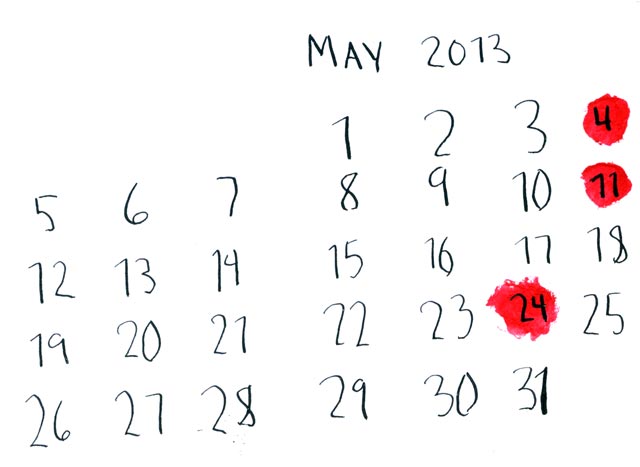 MAY 2013
1 2 3 4
5 6 7 8 9 10 11
12 13 14 15 16 17 18
19 20 21 22 23 24 25
26 27 28 29 30 31